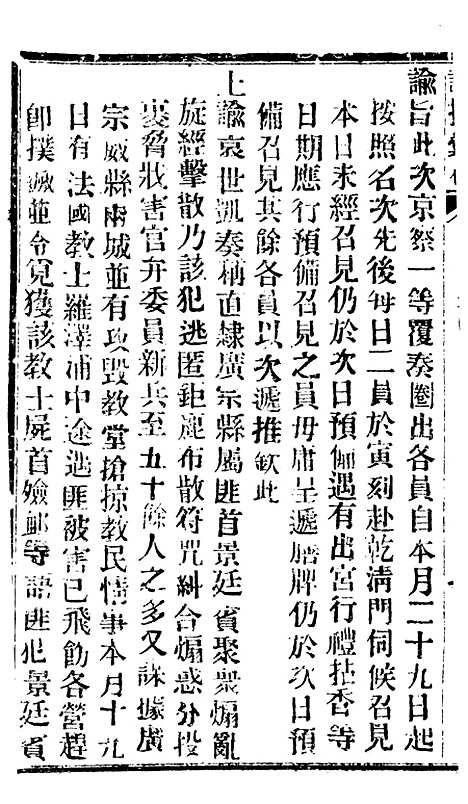 諭旨此次京察一等覆奏圈出各員自本月二十九日起
按照名次先後每日二員於寅刻赴乾清門伺候召見
本日未經召見仍於次日預備遇有出宮行禮拈香等
日期應行預備召見之員毋庸呈遞膳牌仍於次日預
備召見其餘各員以次遞推欽此
上諭袁世凱奏稱直隸廣宗縣屬匪首景廷賓聚衆煽亂
旋經擊散乃該犯逃匿鉅鹿布散符咒糾合煽惑分投
裹脅戕害官弁委員新兵至五十餘人之多又謀據廣
宗威縣兩城並有攻毀教堂搶掠教民情事本月十九
日有法國教士羅澤浦中途遇匪被害已飛飭各營趕
卽撲滅並令覓獲該教士屍首殮卹等語匪犯景廷賓